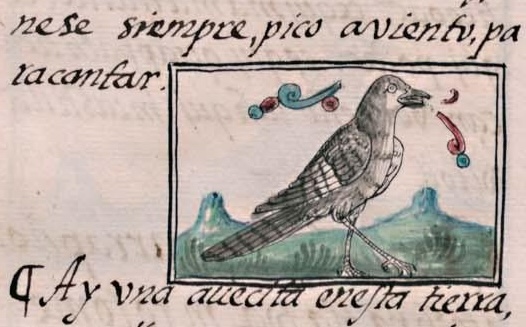 nese siempre, pico aviento, pa
ra cantar.
¶ Ay vna auecita enesta tierra,